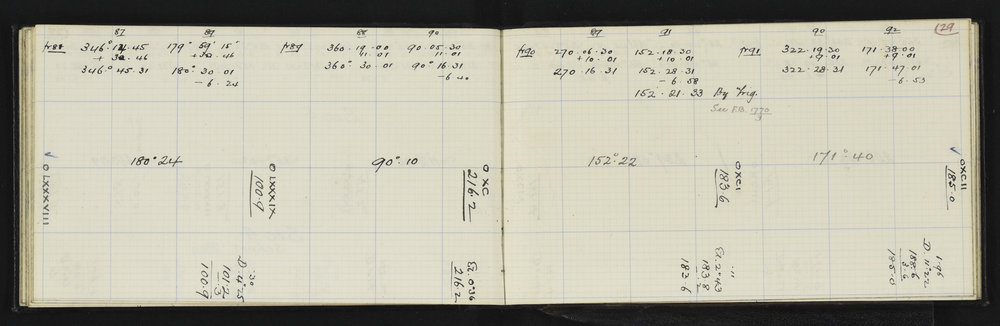 129
87 89
fr88 346°.14.45 179° 59' 15"
+ 30.46 +30.46
346°.45.31 180°.30.01
-6.24
88 90
fr89 360.19.00 90.05.30
11.01 11.01
360°.30.01 90°.16.31
-6.40
89 91
fr90 270.06.30 152.18.30
+10.01 +10.01
270.16.31 152.28.31
-6.58
152.21.33 By Trig.
See F.B. 1770
90 92
fr91 322.19.30 171.38.00
+9.01 +9.01
322.28.31 171.47.01
-6.53
180°24
90°.10
152°.22
171°.40
O LXXXVIII
O LXXXIX
100.9
O XC
216.2
O XCI
183.6
O XCII
185.0
D.4°25
101.2
.3
100.9
El. 0°36
216.2
El. 2°43
183.8
183.6
D.11°22
188.6
3.6
185.0